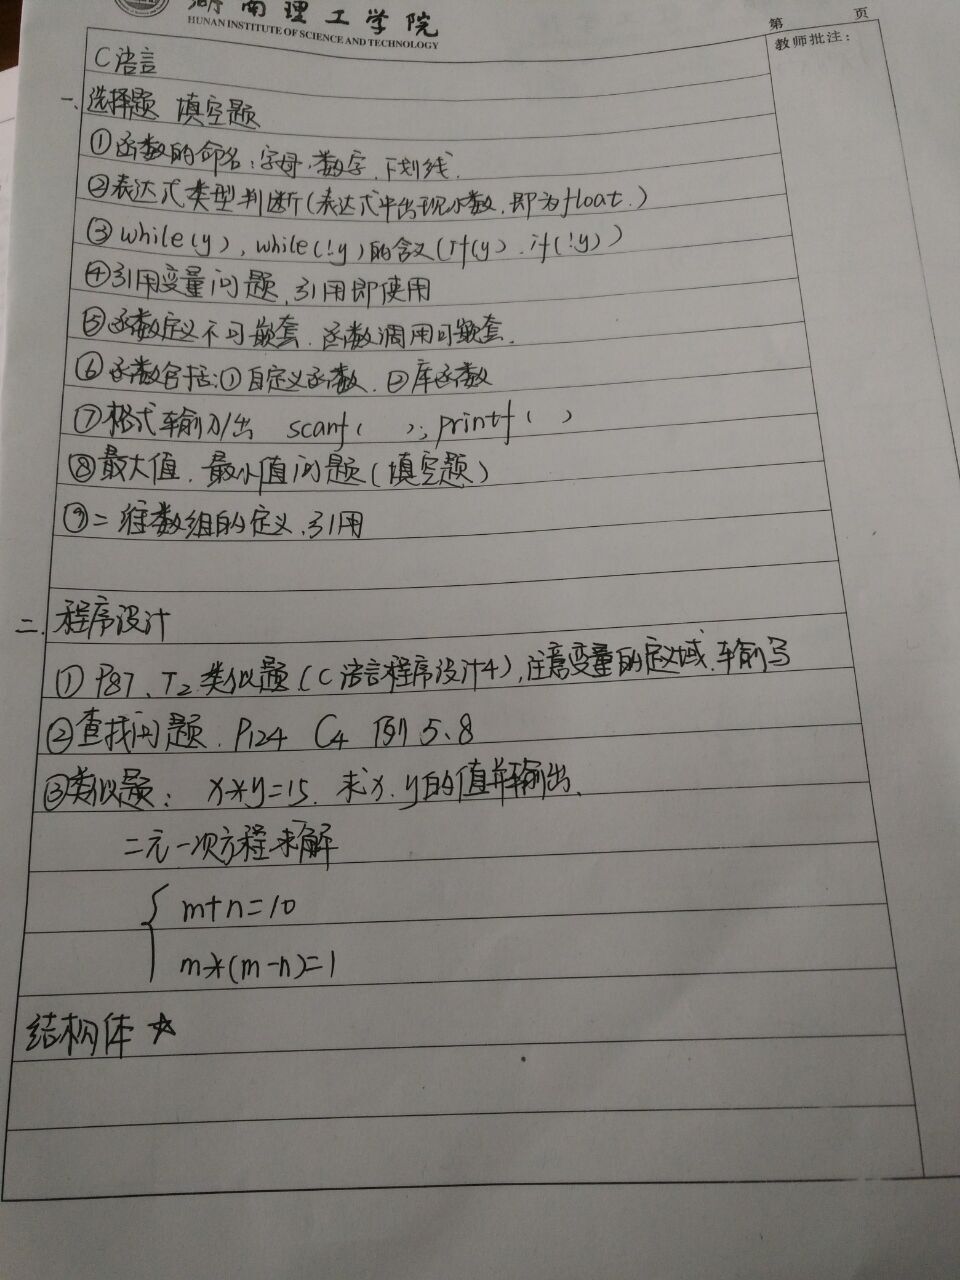 湖南理工学院
HUNAN INSTITUTE OF SCIENCE AND TECHNOLOGY
第 页
教师批注：
C语言
一、选择题 填空题
①函数的命名：字母、数字、下划线.
②表达式类型判断(表达式中出现小数，即为float.)
③while(y), while(!y)的含义(if(y).if(!y))
④引用变量问题，引用即使用
⑤函数定义不可嵌套．函数调用可嵌套．
⑥函数包括：①自定义函数．②库函数
⑦格式输入/出 scanf( ); printf( )
⑧最大值．最小值问题(填空题)
⑨二维数组的定义、引用
二、程序设计
①P87、T2.类似题(C语言程序设计4),注意变量的定义域、输写
②查找问题．P124 C4 例5、8
③类似题： x*y=15. 求x.y的值并输出、
二元一次方程求解
m+n=10
m*(m-n)=1
结构体 ☆